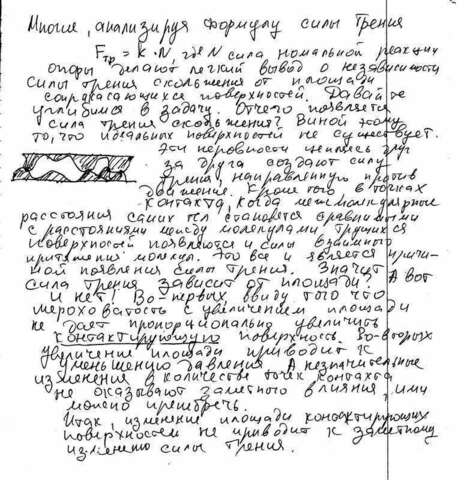 Многие, анализируя формулу силы трения
Fтр = k · N, где N сила нормальной реакции
опоры делают легкий вывод о независимости
силы трения скольжения от площади
соприкасающихся поверхностей. Давайте
углубимся в задачу. Отчего появляется
сила трения скольжения? Виной этому
то, что идеальных поверхностей не существует.
Эти неровности цепляясь друг
за друга создают силу
трения, направленную против
движения. Кроме того в точках
контакта, когда межмолекулярные
расстояния самих тел становятся сравнимыми
с расстояниями между молекулами трущихся
поверхностей появляются и силы взаимного
притяжения молекул. Это все и является причи-
ной появления силы трения. Значит
сила трения зависит от площади? А вот
и нет! Во-первых ввиду того что
шероховатость с увеличением площади
не дает пропорционально увеличить
контактирующую поверхность. Во-вторых
увеличение площади приводит к
уменьшению давления. А незначительные
изменения в количестве точек контакта
не оказывают заметного влияния, ими
можно пренебречь.
Итак, изменение площади контактирующих
поверхностей не приводит к заметному
изменению силы трения.